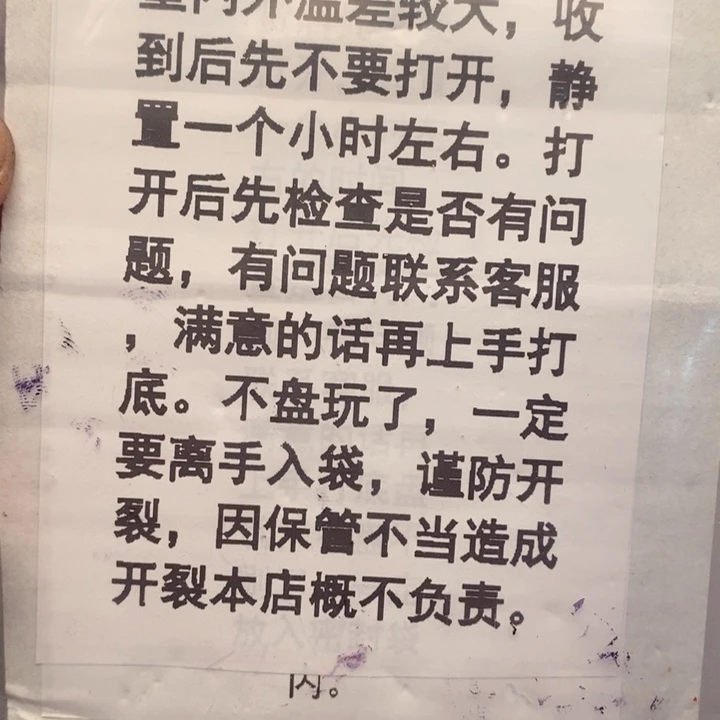 室内外温差较大，收
到后先不要打开，静
置一个小时左右。打
开后先检查是否有问
题，有问题联系客服
，满意的话再上手打
底。不盘玩了，一定
要离手入袋，谨防开
裂，因保管不当造成
开裂本店概不负责。
放入密封袋
内。